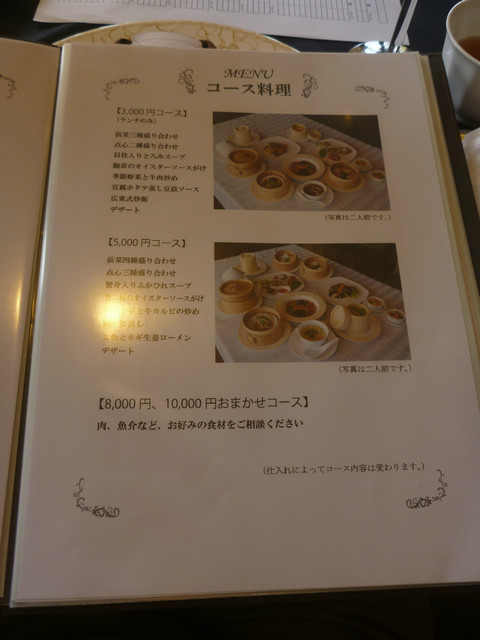 MENU
コース料理
【3,000 円コース】
(ランチのみ)
前菜三種盛り合わせ
点心二種盛り合わせ
貝柱入りとろみスープ
鮑茸のオイスターソースがけ
季節野菜と牛肉炒め
豆腐ホタテ蒸し豆鼓ソース
広東式炒飯
デザート
(写真は二人前です。)
【5,000 円コース】
前菜四種盛り合わせ
点心三種盛り合わせ
蟹身入りふかひれスープ
のオイスターソースがけ
と牛カルビの炒め
蒸し
とネギ生姜ローメン
デザート
(写真は二人前です。)
【8,000 円、10,000 円おまかせコース】
肉、魚介など、お好みの食材をご相談ください
(仕入れによってコース内容は変わります。)